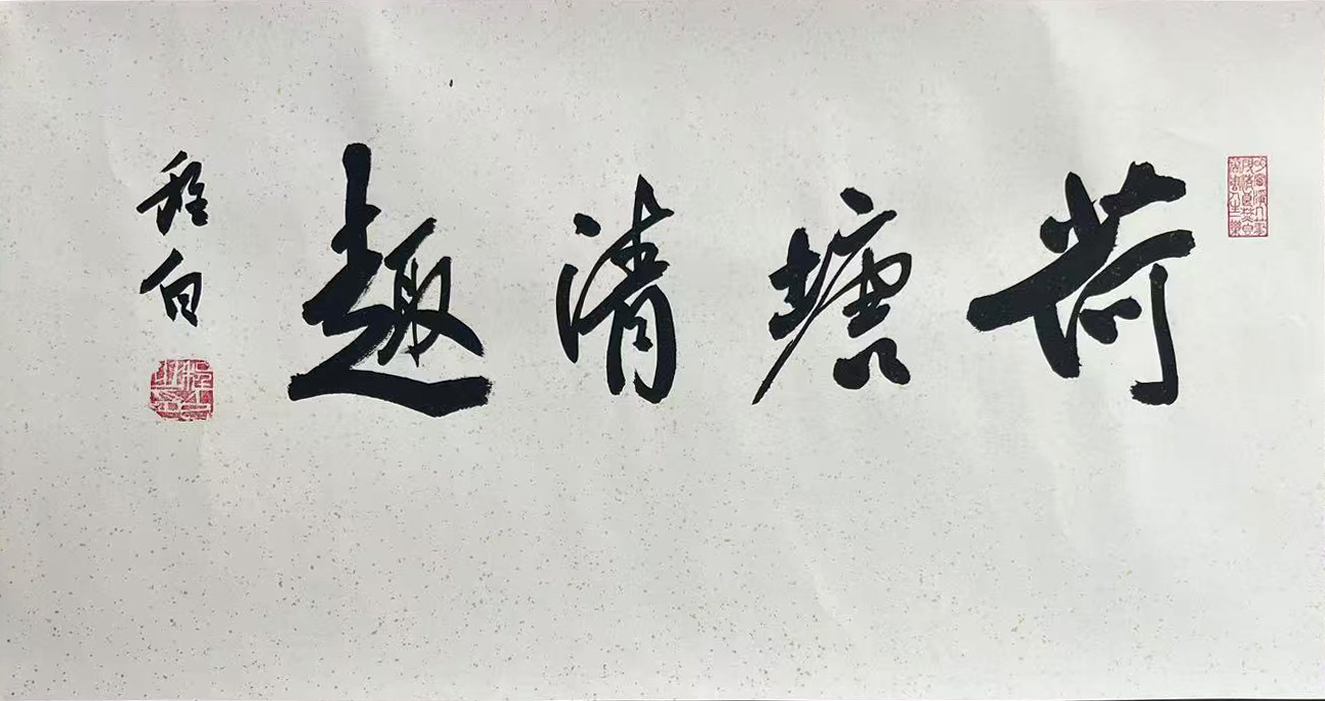 荷塘清趣
程白